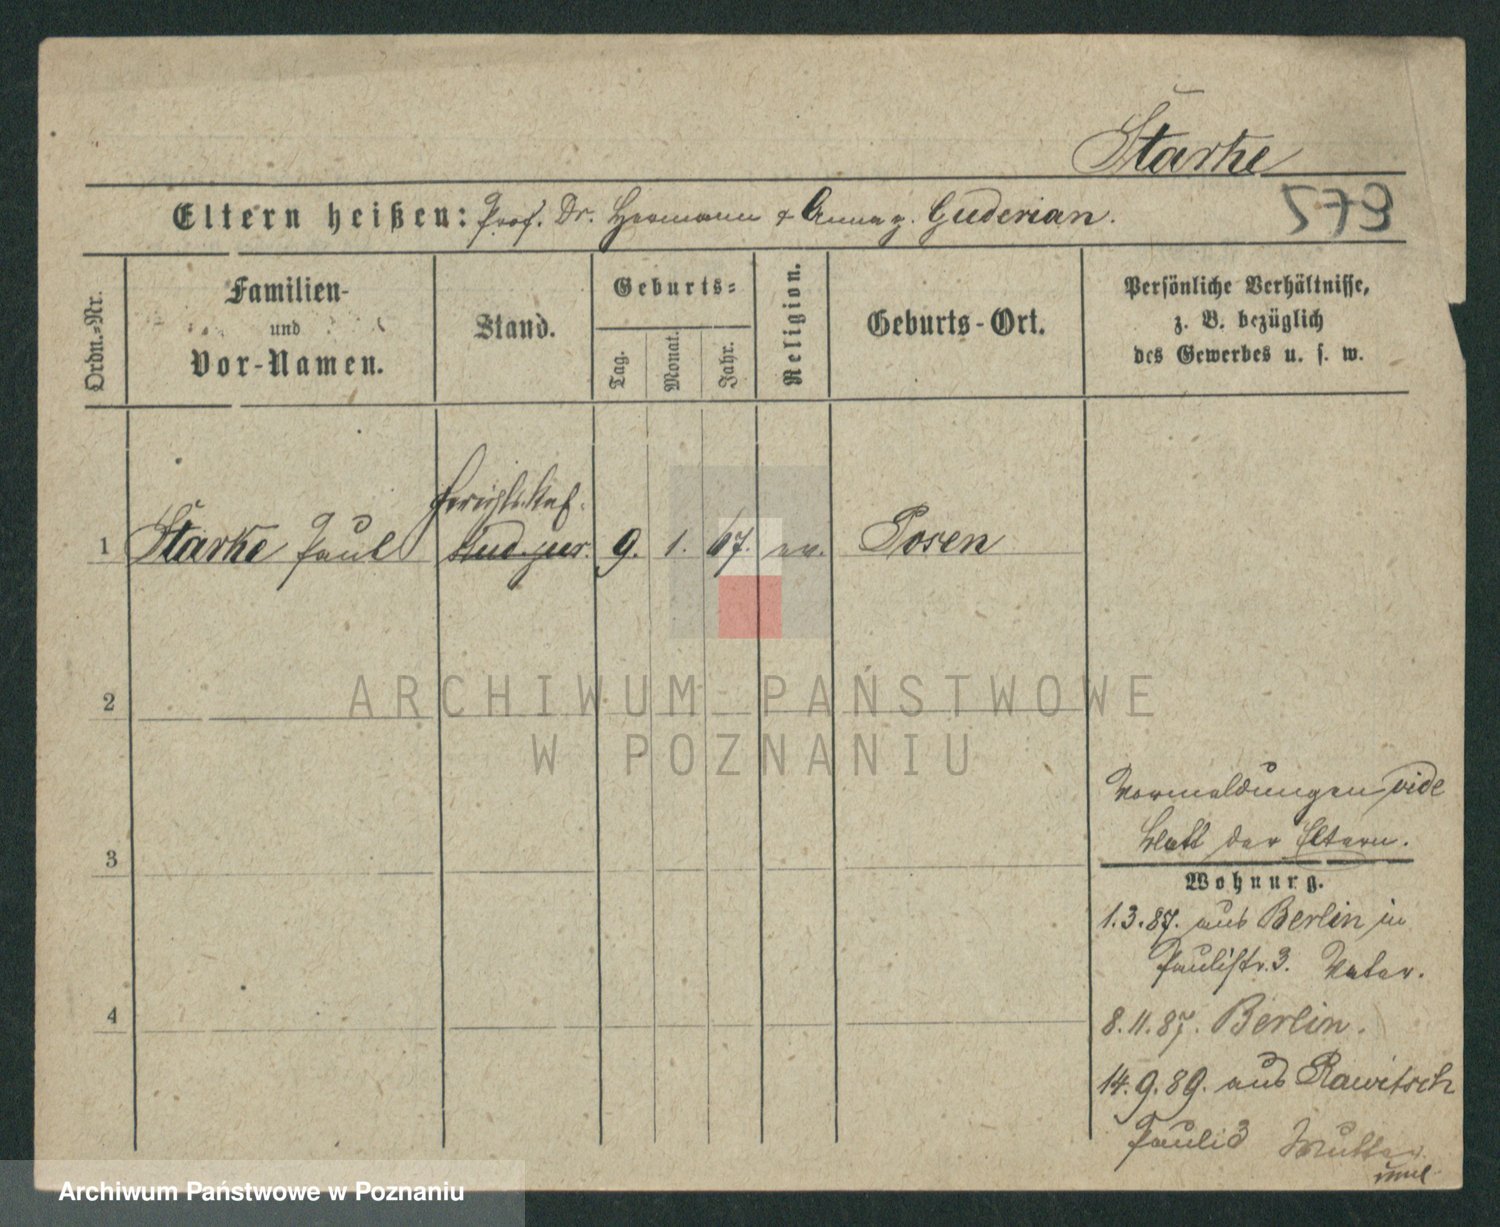 Starke
Eltern heißen: Prof. Dr. Hermann & Anna g. Guderian.
573
Ordn.-Nr.
Familien-
und
Vor-Namen.
Stand.
Geburts-
Tag.
Monat.
Jahr.
Religion.
Geburts-Ort.
Persönliche Verhältnisse,
z. B. bezüglich
des Gewerbes u. s. w.
Gerichts Ref.
1 Starke Paul stud. jur. 9. 1. 67. ev. Posen
2
3
4
Vormeldungen vide
Blatt der Eltern.
Wohnung.
1.3.87. aus Berlin in
Paulistr. 3. Vater.
8.11.87. Berlin.
14.9.89. aus Rawitsch
Pauli 3 Mutter
ARCHIWUM PAŃSTWOWE
W POZNANIU
Archiwum Państwowe w Poznaniu